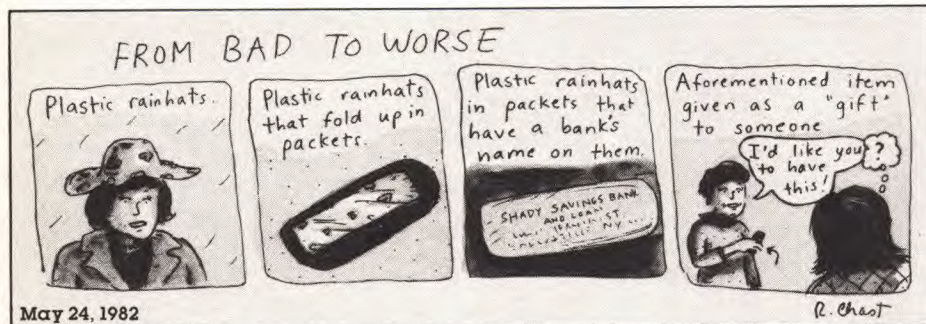 FROM BAD TO WORSE
Plastic rainhats.
Plastic rainhats
that fold up in
packets.
Plastic rainhats
in packets that
have a bank's
name on them.
SHADY SAVINGS BANK
AND LOAN
ST
NY
Aforementioned item
given as a "gift"
to someone
I'd like you
to have
this!
?
May 24, 1982
R. Chast